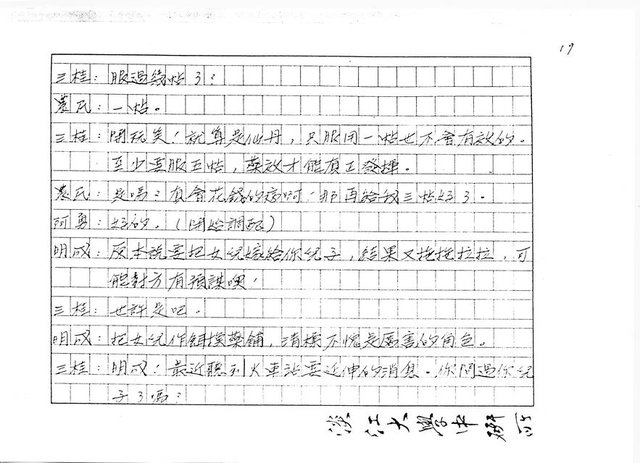 19
三桂：服過幾帖了？
農民：一帖。
三桂：開玩笑！就算是仙丹，只服用一帖也不會有效的。
至少要服五帖，藥效才能真正發揮。
農民：是嗎？真會花錢的病啊！那再給我三帖好了。
阿勇：好的。（開始調配）
明成：原本說要把女兒嫁給你兒子，結果又拖拖拉拉，可
能對方有預謀噢！
三桂：也許是吧。
明成：把女兒作餌換藥鋪，清標不愧是厲害的角色。
三桂：明成！最近聽到火車站要延伸的消息。你問過你兒
子了嗎？
淡江大學中研所